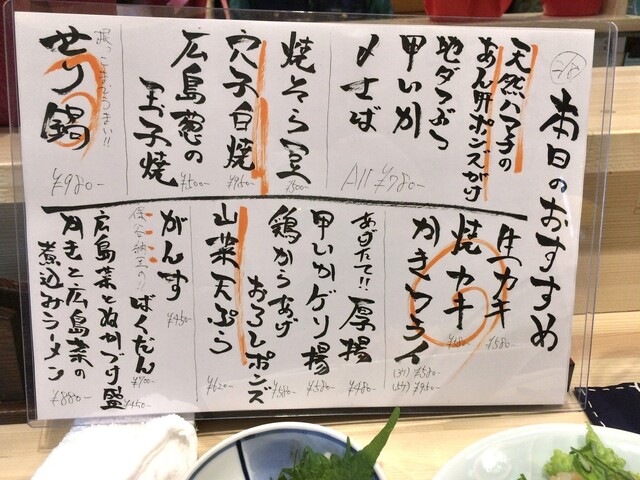 本日のおすすめ
天然ハマチの
あん肝ポンズがけ
地ダコぶつ
甲いか
〆さば
All ¥780-
焼そら豆
¥400-
穴子白焼
¥950-
広島葱の
玉子焼
¥500-
根っこまでうまい!!
せり鍋
¥980-
生カキ
¥580-
焼カキ
¥680-
かきフライ
(3ケ) ¥580-
(5ケ) ¥950-
あげたて!! 厚揚
¥480-
甲いかゲソ揚
¥580-
鶏からあげ
おろしポンズ
¥580-
山菜天ぷら
¥620-
がんす
¥450-
保谷納豆の!! ばくだん
¥700-
広島菜とぬかづけ盛
¥450-
かきと広島菜の
煮込みラーメン
¥880-